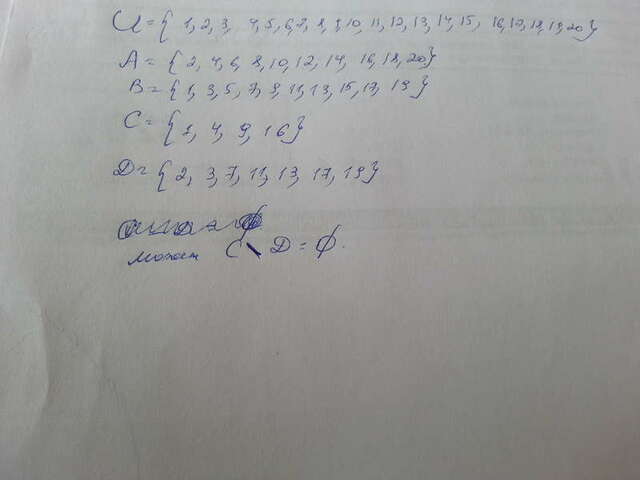 U = { 1, 2, 3, 4, 5, 6, 7, 8, 9, 10, 11, 12, 13, 14, 15, 16, 17, 18, 19, 20}
A = {2, 4, 6, 8, 10, 12, 14, 16, 18, 20}
B = {1, 3, 5, 7, 9, 11, 13, 15, 17, 19}
C = {1, 4, 9, 16}
D = {2, 3, 7, 11, 13, 17, 19}
C \ D = ∅.